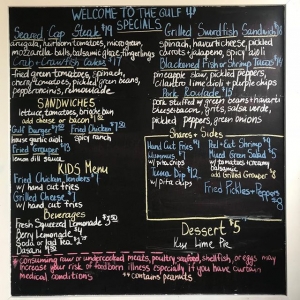 WELCOME TO THE GULF
SPECIALS
Seared Cap Steak $19
arugula, heirloom tomatoes, micro green,
mozzarella balls, balsamic glaze, fingerlings
Crab + Crawfish Cakes $17
fried green tomatoes, spinach,
cherry tomatoes, pickled green beans,
pepperoncinis, remoulade
SANDWICHES
lettuce, tomatoes, brioche bun
add cheese or bacon $1.50
Gulf Burger
house garlic aioli
Fried Grouper $13
lemon dill sauce
Fried Chicken
spicy ranch
KIDS Menu
Fried Chicken Tenders
w/ hand cut fries
Grilled Cheese
w/ hand cut fries
Beverages
Fresh Squeezed Lemonade
Berry Lemonade $4
Soda or Iced Tea
Dasani
Grilled Swordfish Sandwich
spinach, havarti cheese, pickled
carrots + jalapeño, spicy aioli
Blackened Fish or Shrimp Tacos
pineapple slaw, pickled peppers,
cilantro lime aioli + purple chips
Pork Roulade
pork stuffed w/ green beans + havarti
cheese, bacon, grits, salsa verde,
pickled peppers, green onions
Shares + Sides
Hand Cut Fries $4
Hummus
w/ pita chips
Tuna Dip $12
w/ pita chips
Peel + Eat Shrimp
Mixed Green Salad
w/ tomatoes, creamy
balsamic
add Grilled Grouper $8
Fried Pickles + Peppers
$8
Dessert $5
Key Lime Pie
* consuming raw or undercooked meats, poultry, seafood, shellfish, or eggs may
increase your risk of foodborn illness especially if you have certain
medical conditions ** contains peanuts